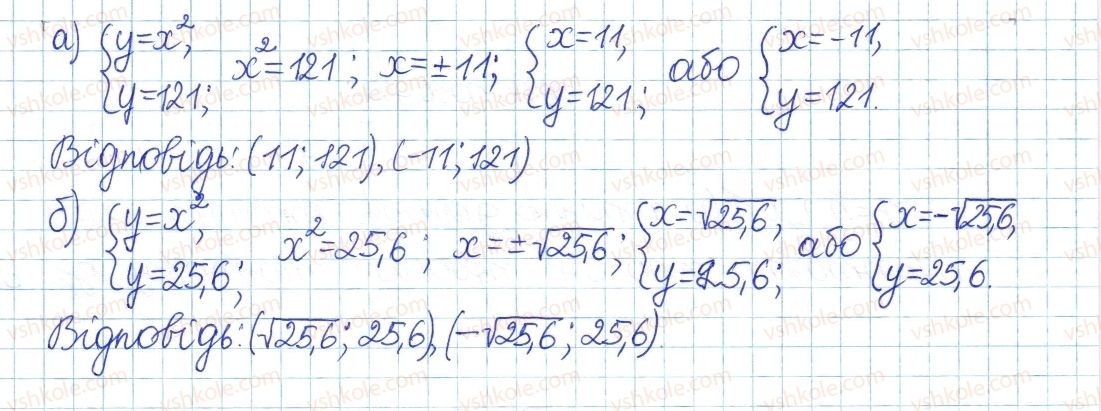 а) { y=x², y=121; x²=121; x=±11; { x=11, y=121; або { x=-11, y=121.
Відповідь: (11; 121), (-11; 121)
б) { y=x², y=25,6; x²=25,6; x=±√25,6; { x=√25,6, y=25,6; або { x=-√25,6, y=25,6.
Відповідь: (√25,6; 25,6), (-√25,6; 25,6).
vshkole.com